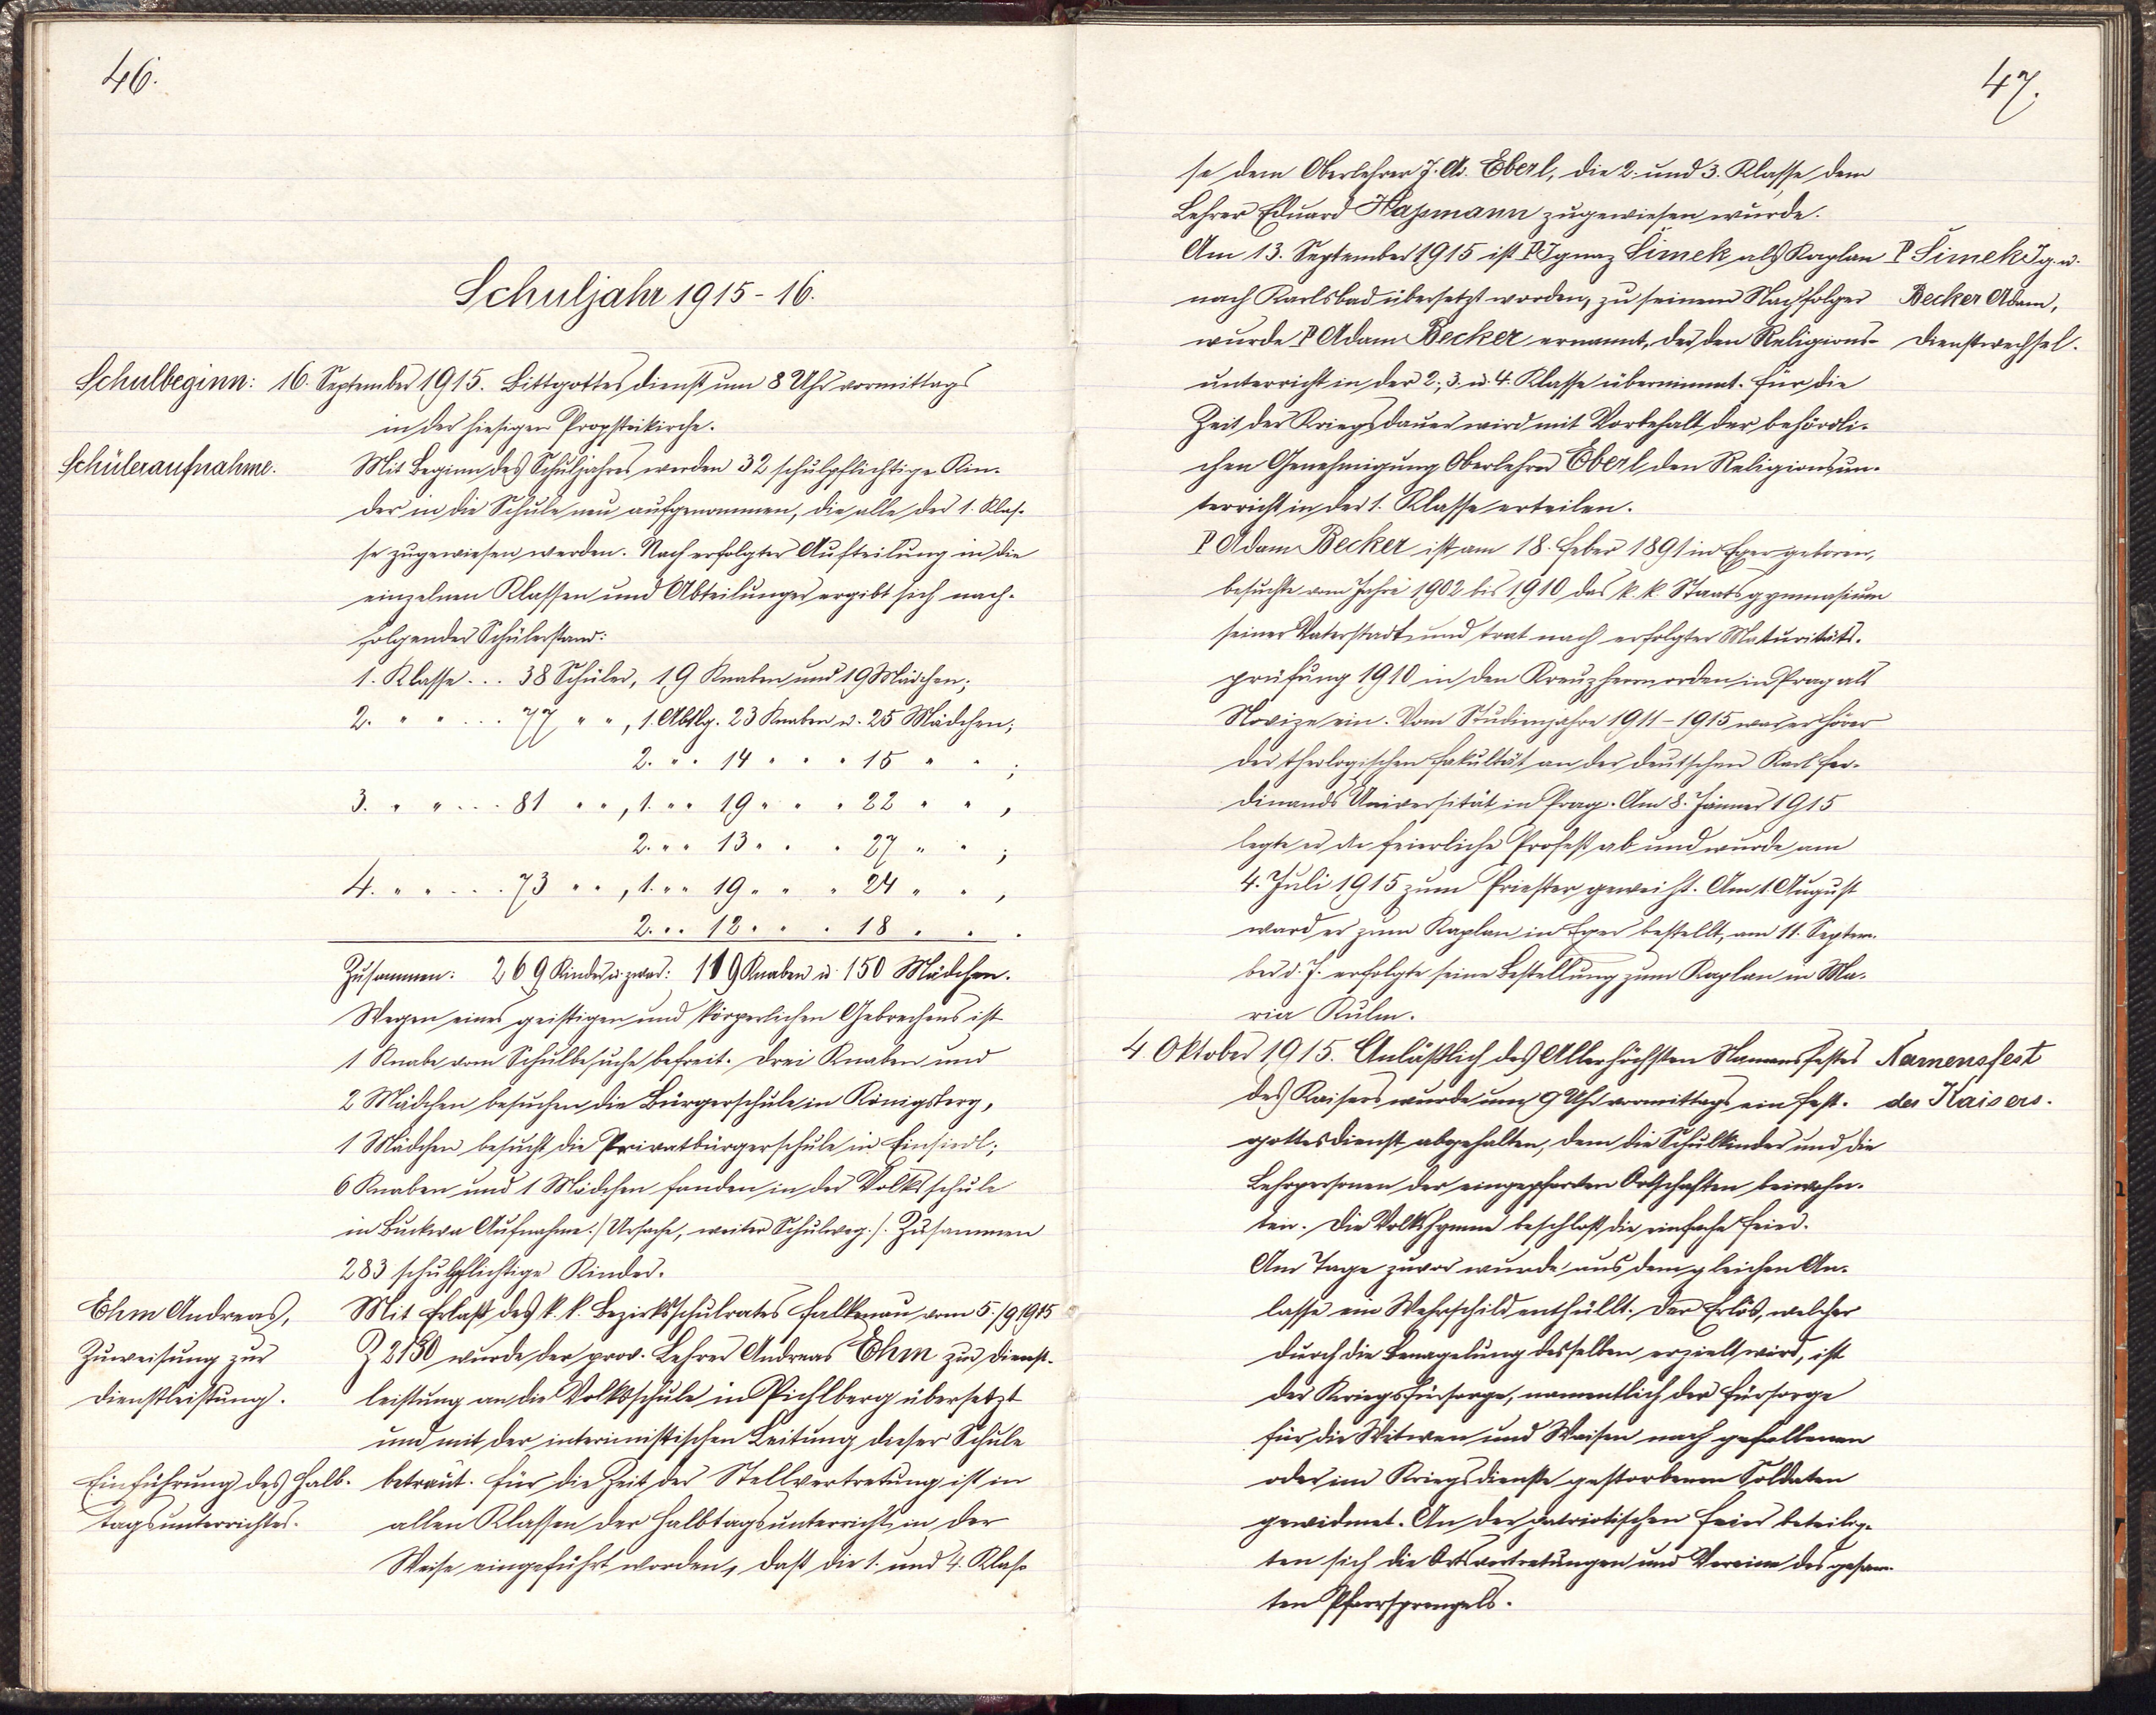 46.
Schuljahr 1915-16.
Schulbeginn: 16. September 1915. Bittgottesdienst um 8 Uhr vormittags
in der hiesigen Propsteikirche.
Schüleraufnahme. Mit Beginn des Schuljahres werden 32 schulpflichtige Kin-
der in die Schule neu aufgenommen, die alle der 1. Klas-
se zugewiesen werden. Nach erfolgter Aufteilung in die
einzelnen Klassen und Abteilungen ergibt sich nach-
folgender Schülerstand:
1. Klasse... 38 Schüler, 19 Knaben und 19 Mädchen;
2. " " ... 77 " ", 1. Abtlg. 23 Knaben u. 25 Mädchen;
2. " " 14 " " " 15 " " ;
3. " " ... 81 " ", 1. " " 19 " " " 22 " " ,
2. " " 13 " " " 27 " " ;
4. " " ... 73 " ", 1. " " 19 " " " 24 " " ,
2. " " 12 " " " 18 " " .
Zusammen: 269 Kinder u. zwar: 119 Knaben u. 150 Mädchen.
Wegen eines geistigen und körperlichen Gebrechens ist
1 Knabe vom Schulbesuche befreit. Drei Knaben und
2 Mädchen besuchen die Bürgerschule in Königsberg,
1 Mädchen besucht die Privatbürgerschule in Einsiedl;
6 Knaben und 1 Mädchen fanden in der Volksschule
in Buckwa Aufnahme./Ursache, weiter Schulweg./. Zusammen
283 schulpflichtige Kinder.
Ehm Andreas, Mit Erlaß des k. k. Bezirksschulrates Falkenau vom 5./9 1915
Zuweisung zur Z 2150 wurde der prov. Lehrer Andreas Ehm zur Dienst-
Dienstleistung. leistung an die Volksschule in Pichlberg übersetzt
und mit der interimistischen Leitung dieser Schule
Einführung des Halb- betraut. Für die Zeit der Stellvertretung ist in
tagsunterrichtes. allen Klassen der Halbtagsunterricht in der
Weise eingeführt worden, daß die 1. und 4. Klas-
47.
se dem Oberlehrer J. A. Eberl, die 2. und 3. Klasse dem
Lehrer Eduard Hassmann zugewiesen wurde.
Am 13. September 1915 ist P Ignaz Šimek als Kaplan P Šimek Ig. u.
nach Karlsbad übersetzt worden, zu seinem Nachfolger Becker Adam,
wurde P Adam Becker ernannt, der den Religions- Dienstwechsel.
unterricht in der 2., 3. u. 4. Klasse übernimmt. Für die
Zeit der Kriegsdauer wird mit Vorbehalt der behördli-
chen Genehmigung Oberlehrer Eberl den Religionsun-
terricht in der 1. Klasse erteilen.
P Adam Becker ist am 18. Feber 1891 in Eger geboren,
besuchte vom Jahre 1902 bis 1910 das k. k. Staatsgymnasium
seiner Vaterstadt und trat nach erfolgter Maturitäts-
prüfung 1910 in den Kreuzherrnorden in Prag als
Novize ein. Vom Studienjahre 1911-1915 war er Hörer
der theologischen Fakultät an der deutschen Karl Fer-
dinands Universität in Prag. Am 8. Jänner 1915
legte er die feierliche Profeß ab und wurde am
4. Juli 1915 zum Priester geweiht. Am 1. August
ward er zum Kaplan in Eger bestellt, am 11. Septem-
ber d. J. erfolgte seine Bestellung zum Kaplan in Ma-
ria Kulm.
4. Oktober 1915. Anläßlich des Allerhöchsten Namensfestes Namensfest
des Kaisers wurde um 9 Uhr vormittags ein Fest- des Kaisers.
gottesdienst abgehalten, dem die Schulkinder und die
Lehrpersonen der eingepfarrten Ortschaften beiwohn-
ten. Die Volkshymne beschloß die einfache Feier.
Am Tage zuvor wurde aus dem gleichen An-
lasse ein Wehrschild enthüllt. Der Erlös, welcher
durch die Benagelung desselben erzielt wird, ist
der Kriegsfürsorge, namentlich der Fürsorge
für die Witwen und Waisen nach gefallenen
oder im Kriegsdienste gestorbenen Soldaten
gewidmet. An der patriotischen Feier beteilig-
ten sich die Ortsvertretungen und Vereine des gesam-
ten Pfarrsprengels.